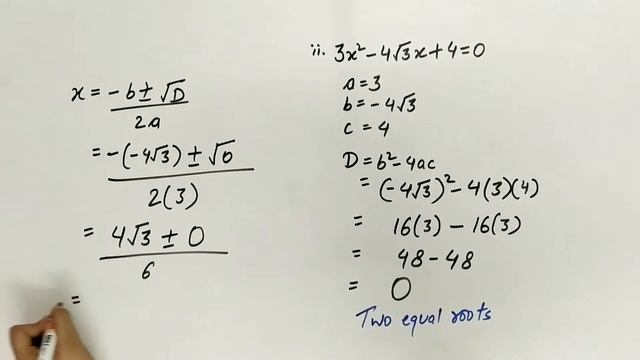 ii. 3x² - 4√3x + 4 = 0
a = 3
b = -4√3
c = 4
D = b² - 4ac
= (-4√3)² - 4(3)(4)
= 16(3) - 16(3)
= 48 - 48
= 0
Two equal roots
x = -b ± √D
2a
= -(-4√3) ± √0
2(3)
= 4√3 ± 0
6
=